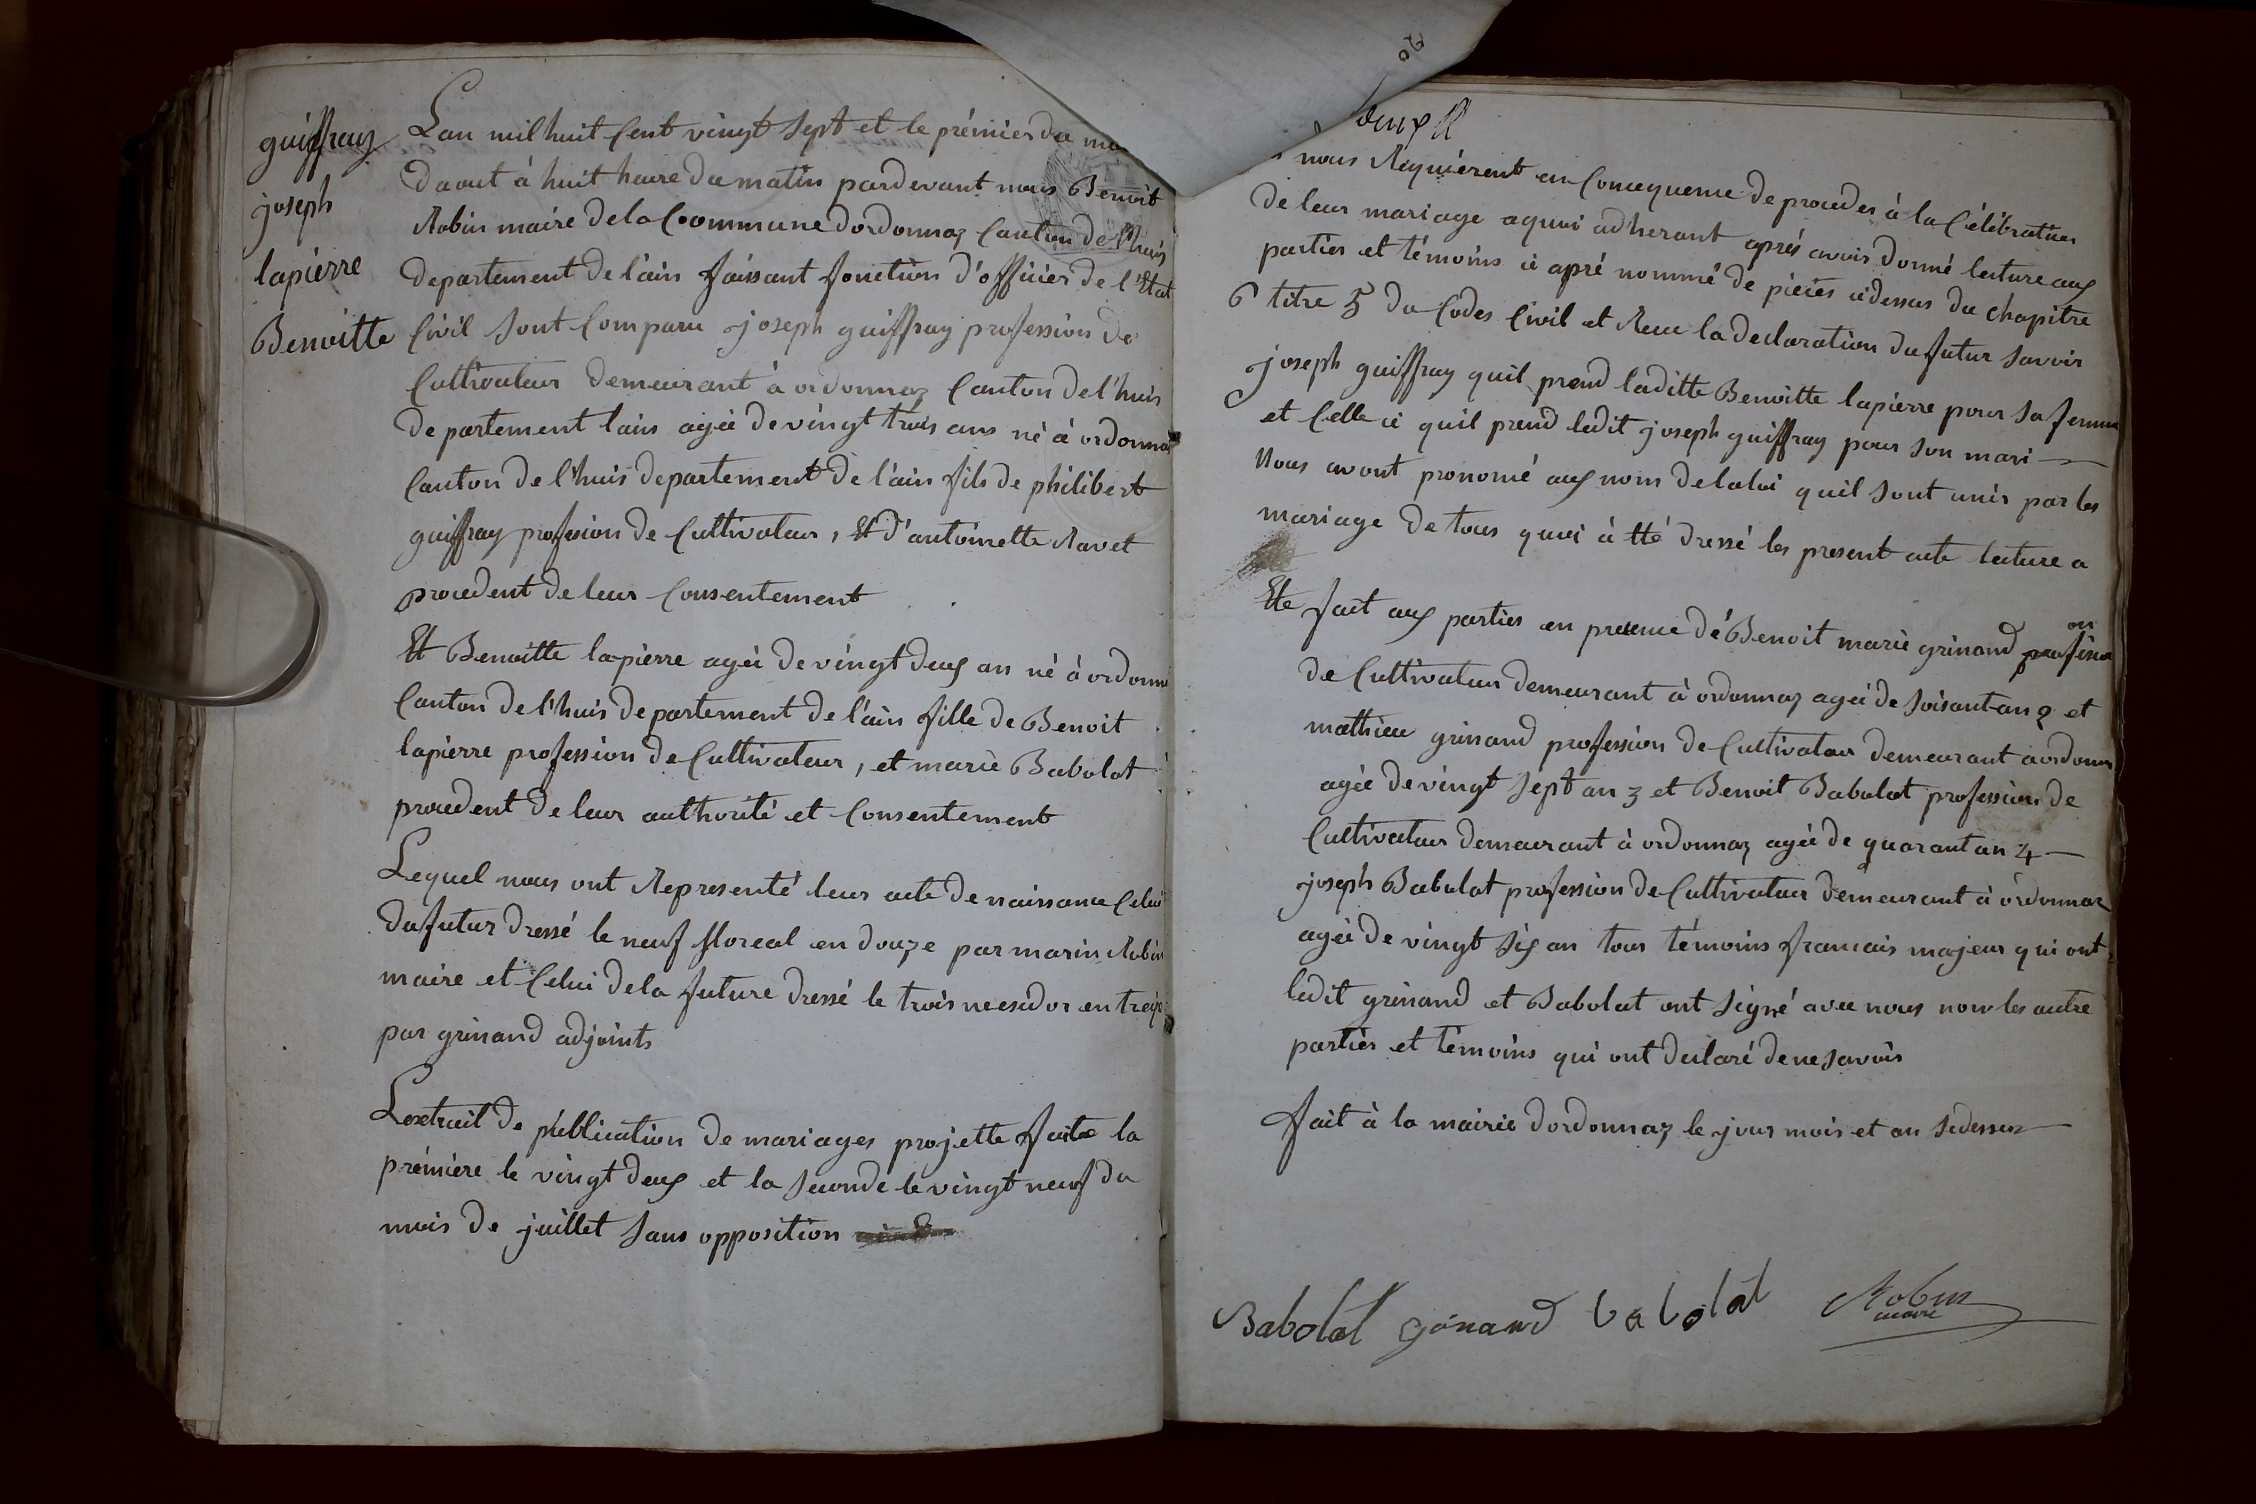 guiffray
joseph
lapierre
Benoitte
Lan mil huit Cent vingt Sept et le prémier du
daout à huit heure du matin pardevant nous Benoit
Robin maire de la Commune dordonnaz Canton de l'huis
departement de l'ain faissant fonction d'officier de l'Etat
Civil Sont Comparu joseph guiffray profession de
Cultivateur demeurant à ordonnaz Canton de l'huis
departement lain agée de vingt trois ans né à ordonnaz
Canton de l'huis departement de l'ain fils de philibert
guiffray profesion de Cultivateur, Et d'antoinette Ravet
procedent de leur Consentement
Et Benoitte lapierre agée de vingt deux an né à ordonn
Canton de l'huis departement de l'ain fille de Benoit
lapierre profession de Cultivateur, et marie Babolat
procedent de leur authorité et Consentement
Lequel nous ont Representé leur acte de naissance Celui
du futur dressé le neuf floreal en douze par marin Robin
maire et Celui de la future dressé le trois messidor en treize
par grinand adjoints
Lextrait de publication de mariages projette faite la
prémiere le vingt deux et la Seconde le vingt neuf du
mois de juillet Sans opposition
70
nous Requiérent en Concequence de proceder à la Célébration
de leur mariage aquoi adherant aprés avoir donné lecture aux
parties et témoins ci apré nommé de pièces cidessus du chapitre
6 titre 5 du Codes Civil et Recu la declaration du futur Savoir
joseph guiffray quil prend laditte Benoitte lapierre pour Sa femme
et Celle ci quil prend ledit joseph guiffray pour Son mari
Nous avont prononcé aux nom de la loi quil Sont unis par les
mariage de tous quoi à Eté dressé les present acte lecture a
Ete fait aux parties en presence dé Benoit marie grinand profesion
de Cultivateur demeurant à ordonnaz agée de soisant an 2 et
mathieu grinand profession de Cultivateur demeurant a ordonn
agée de vingt Sept an 3 et Benoit Babolat profession de
Cultivateur demeurant à ordonnaz agée de quarant an 4
joseph Babolat profession de Cultivateur demeurant à ordonnaz
agée de vingt Six an tous témoins francais majeur qui ont
ledit grinand et Babolat ont Signé avec nous non les autre
parties et témoins qui ont declaré de ne Savoir
fait à la mairie dordonnaz le jour mois et an Sidessus
Babolat ginand babolat Robin
maire